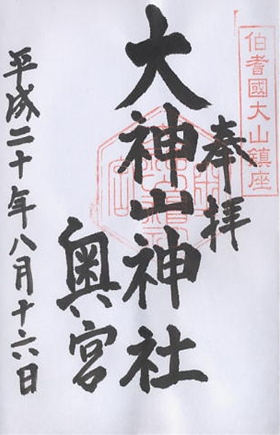 伯耆國大山鎮座
奉拝
大神山神社
奥宮
平成二十年八月十六日